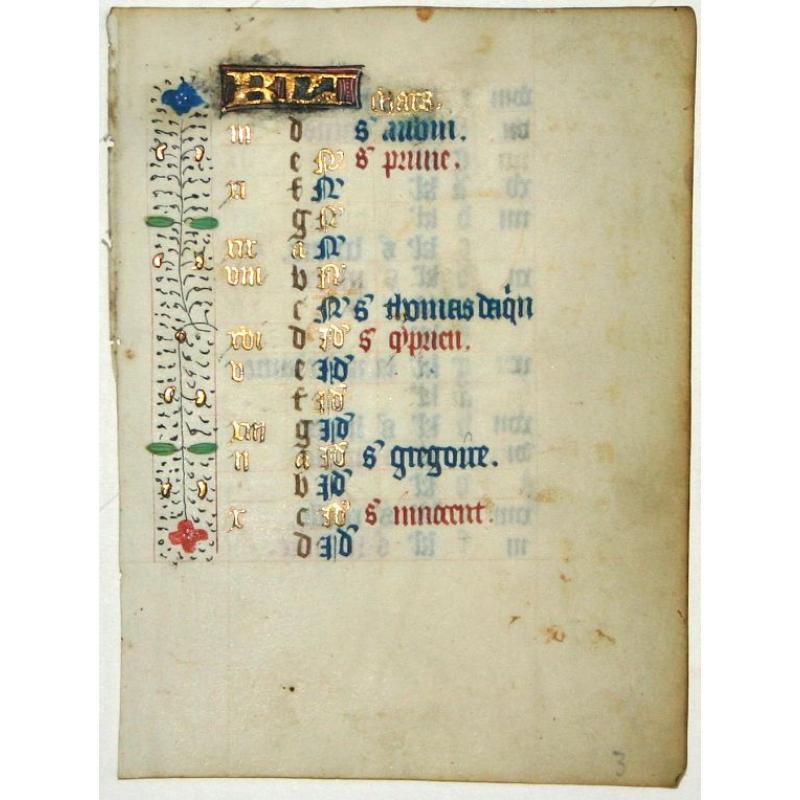 KL mars.
iii d s aubin.
e N s prime.
xi f N
g N
xix a N
viii b N
c N s thomas daqin
xvi d Id s cyprien.
v e Id
f Id
xiii g Id
ii a Id s gregoire.
b Id
x c Id s innocent.
d Id
3